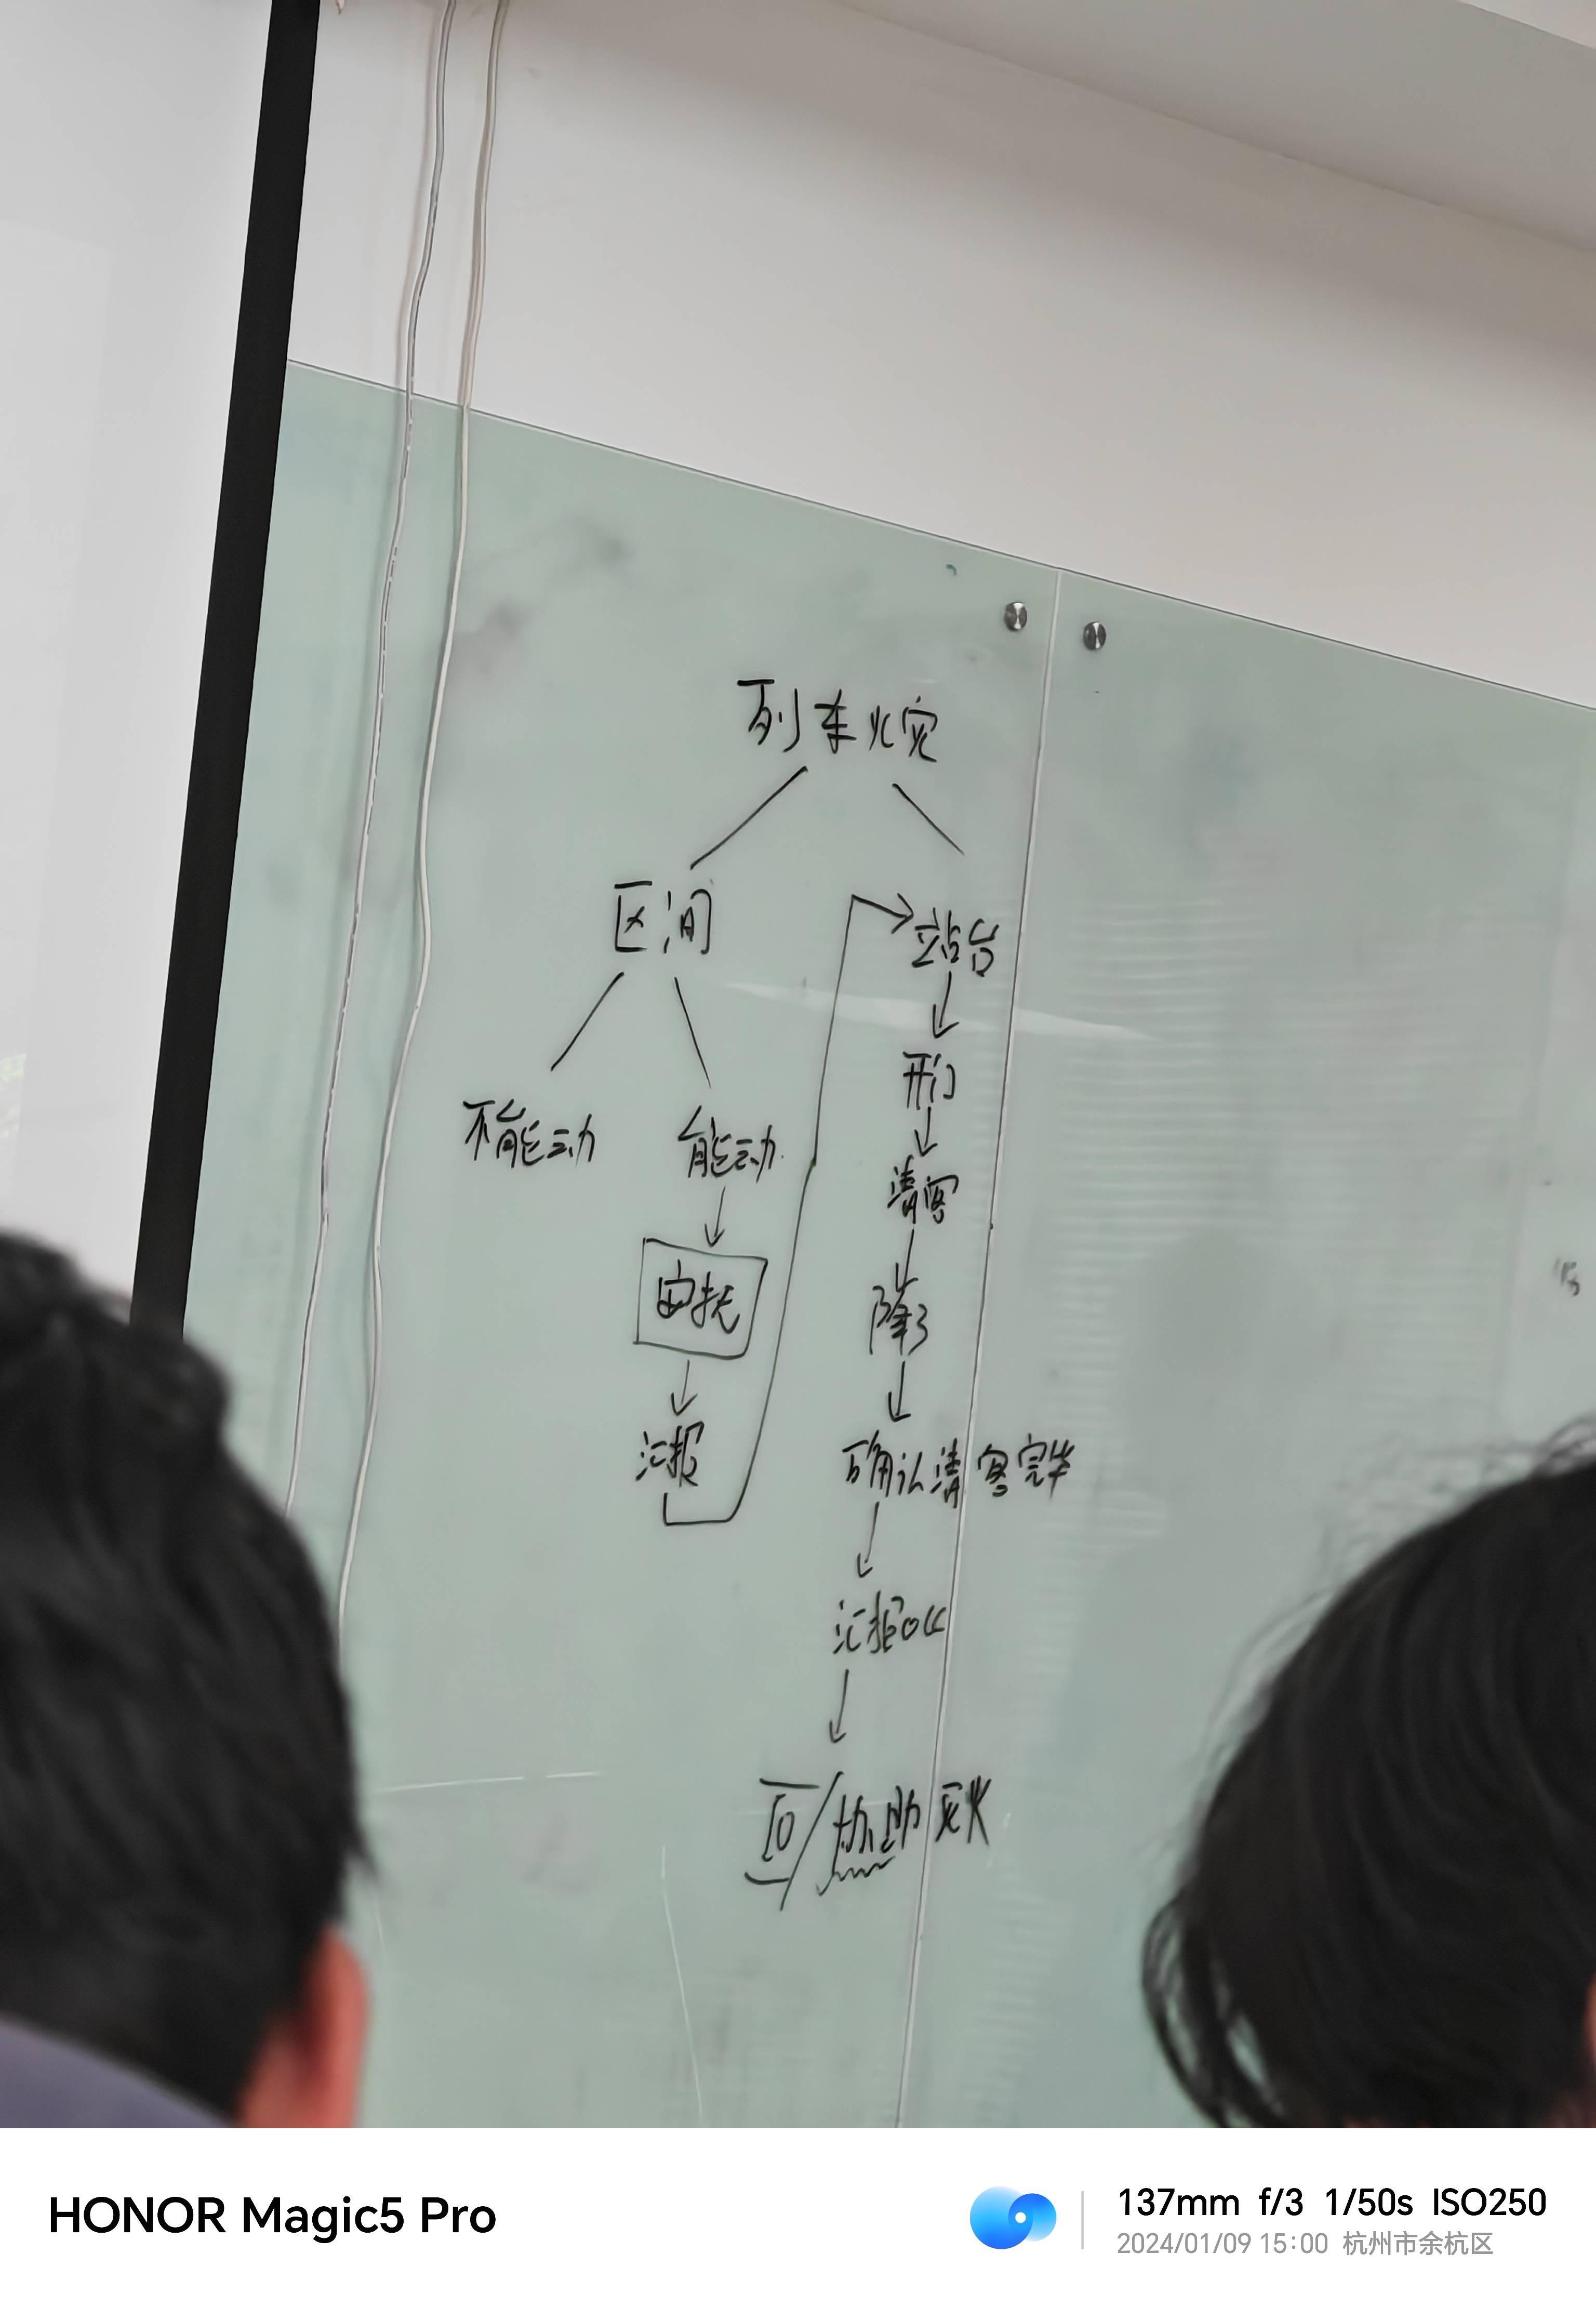 列车火灾
区间
站台
开门
不能动
能动
清客
安抚
降弓
汇报
确认清客完毕
汇报OCC
回/协助灭火
HONOR Magic5 Pro
137mm f/3 1/50s ISO250
2024/01/09 15:00 杭州市余杭区